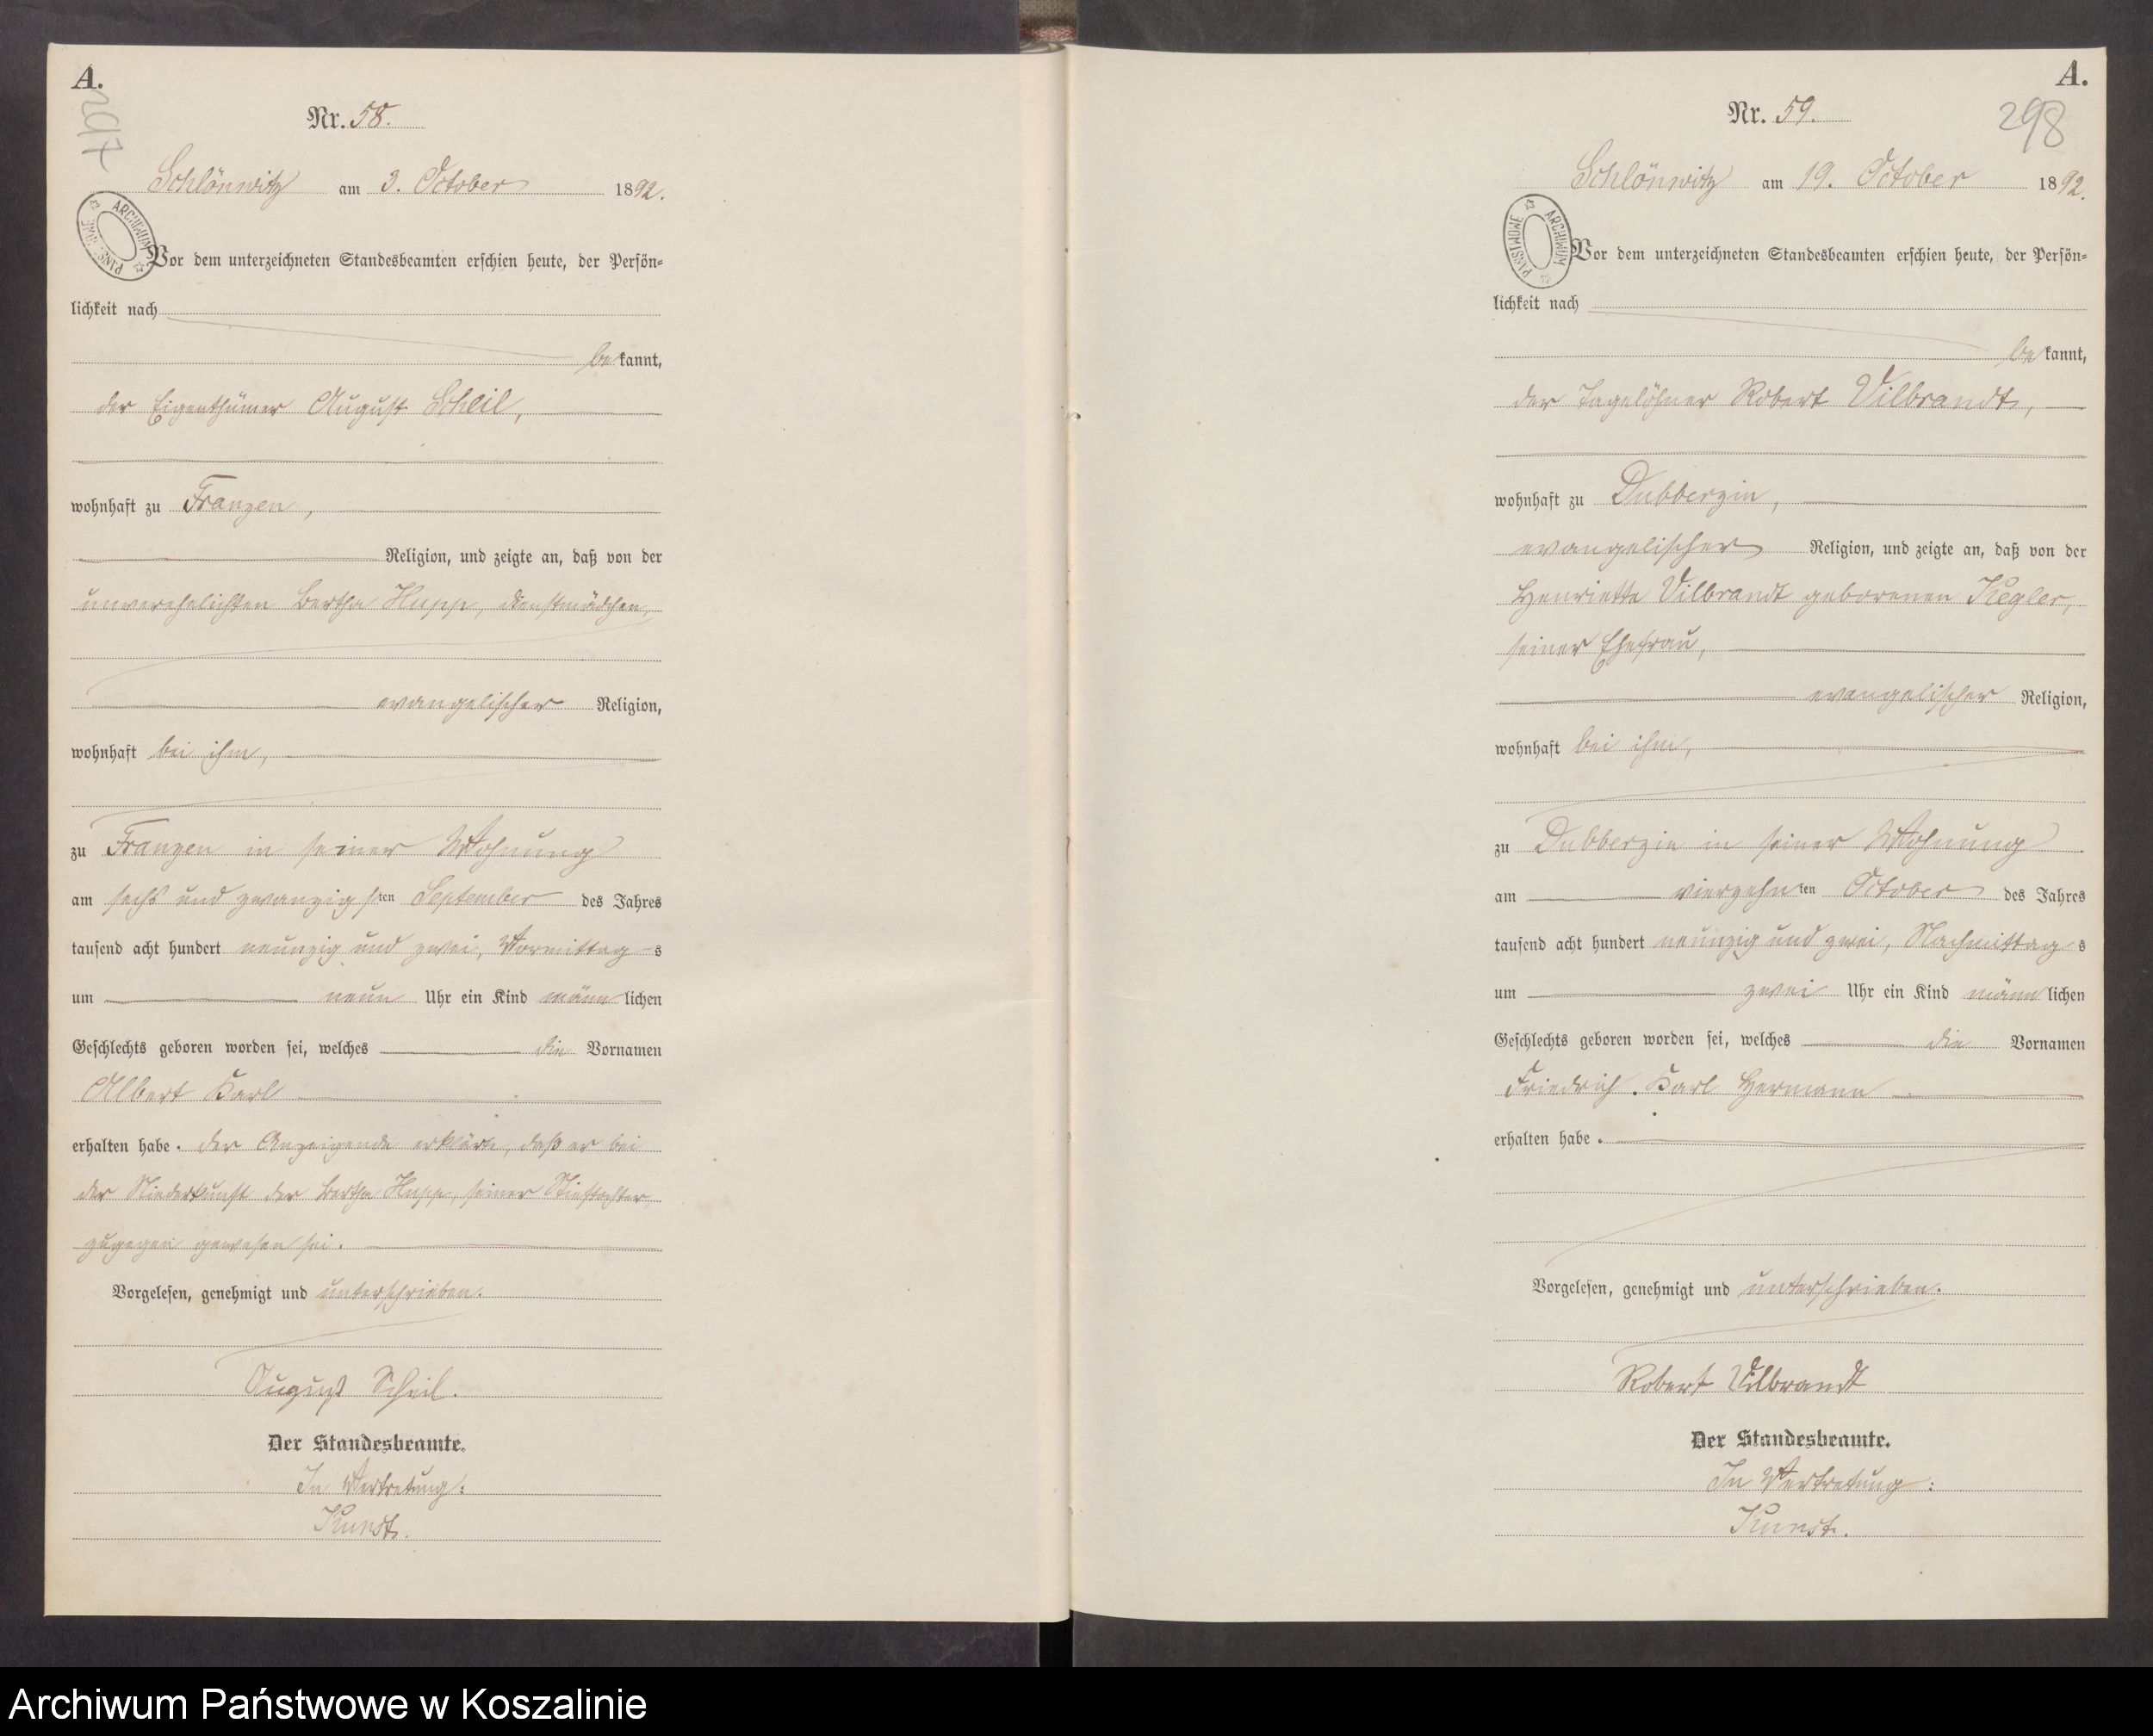 A.
297
Nr. 58.
Schlönwitz am 3. October 1892.
ARCHIWUM
Vor dem unterzeichneten Standesbeamten erschien heute, der Persön-
lichkeit nach
be kannt,
der Eigenthümer August Scheil,
wohnhaft zu Franzen,
Religion, und zeigte an, daß von der
unverehelichten Bertha Hupp, Dienstmädchen,
evangelischer Religion,
wohnhaft bei ihm,
zu Franzen in seiner Wohnung
am sechs und zwanzigsten September des Jahres
tausend acht hundert neunzig und zwei, Vormittags
um neun Uhr ein Kind männlichen
Geschlechts geboren worden sei, welches die Vornamen
Albert Karl
erhalten habe. Der Anzeigende erklärte, daß er bei
der Niederkunft der Bertha Hupp, seiner Stieftochter,
zugegen gewesen sei.
Vorgelesen, genehmigt und unterschrieben.
August Scheil.
Der Standesbeamte.
In Vertretung:
Kunst.
A.
298
Nr. 59.
Schlönwitz am 19. October 1892.
ARCHIWUM PAŃSTWOWE
Vor dem unterzeichneten Standesbeamten erschien heute, der Persön-
lichkeit nach
be kannt,
der Tagelöhner Robert Vilbrandt,
wohnhaft zu Dubberzin,
evangelischer Religion, und zeigte an, daß von der
Henriette Vilbrandt geborenen Kegler,
seiner Ehefrau,
evangelischer Religion,
wohnhaft bei ihm,
zu Dubberzin in seiner Wohnung
am vierzehnten October des Jahres
tausend acht hundert neunzig und zwei, Nachmittags
um zwei Uhr ein Kind männlichen
Geschlechts geboren worden sei, welches die Vornamen
Friedrich Karl Hermann
erhalten habe.
Vorgelesen, genehmigt und unterschrieben.
Robert Vilbrandt
Der Standesbeamte.
In Vertretung:
Kunst.
Archiwum Państwowe w Koszalinie